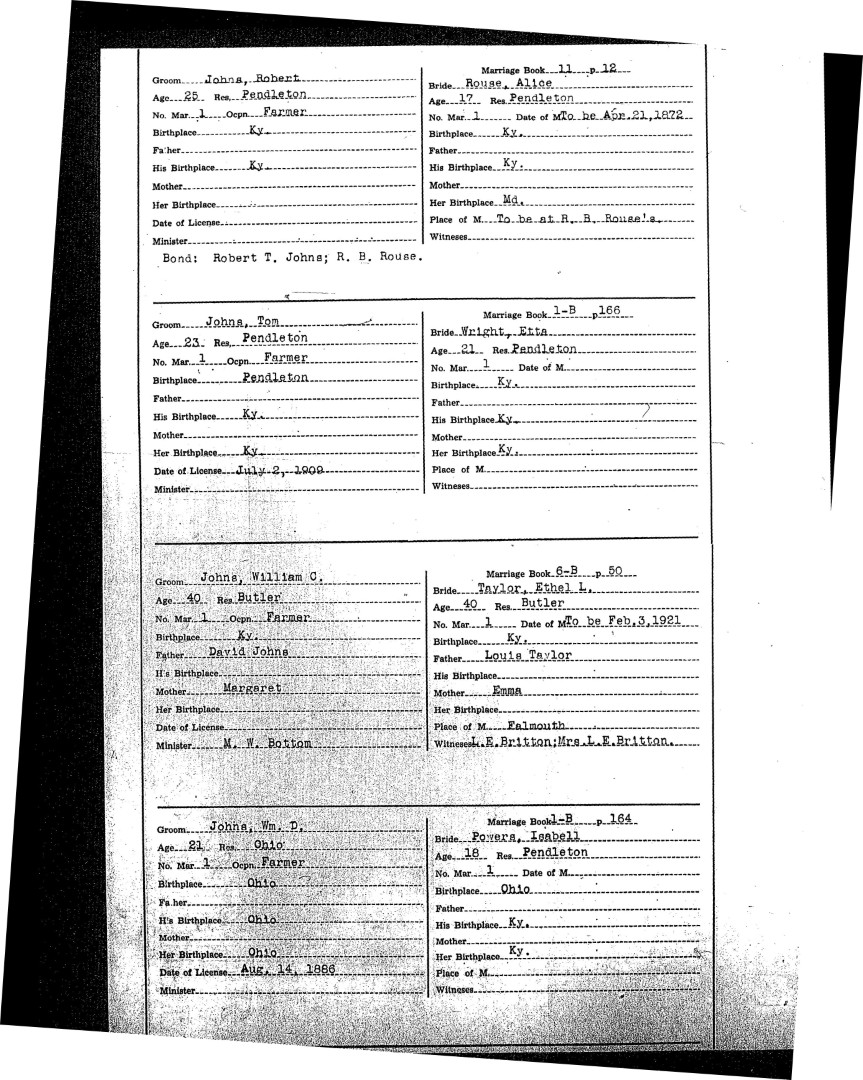 Groom Johns, Robert
Age 25 Res. Pendleton
No. Mar. 1 Ocpn. Farmer
Birthplace Ky.
Father
His Birthplace Ky.
Mother
Her Birthplace
Date of License
Minister
Marriage Book 11 p 12
Bride Rouse, Alice
Age 17 Res Pendleton
No. Mar. 1 Date of M To be Apr. 21, 1872
Birthplace Ky.
Father
His Birthplace Ky.
Mother
Her Birthplace Md.
Place of M. To be at R. B. Rouse's.
Witneses
Bond: Robert T. Johns; R. B. Rouse.
Groom Johns, Tom
Age 23 Res. Pendleton
No. Mar. 1 Ocpn. Farmer
Birthplace Pendleton
Father
His Birthplace Ky.
Mother
Her Birthplace Ky.
Date of License July 2, 1909
Minister
Marriage Book 1-B p166
Bride Wright, Etta
Age 21 Res. Pendleton
No. Mar. 1 Date of M.
Birthplace Ky.
Father
His Birthplace Ky.
Mother
Her Birthplace Ky.
Place of M.
Witneses
Groom Johns, William C.
Age 40 Res. Butler
No. Mar. 1 Ocpn. Farmer
Birthplace Ky.
Father David Johns
H's Birthplace
Mother Margaret
Her Birthplace
Date of License
Minister M. W. Bottom
Marriage Book 6-B p 50
Bride Taylor, Ethel L.
Age 40 Res. Butler
No. Mar. 1 Date of M To be Feb. 3, 1921
Birthplace Ky.
Father Louis Taylor
His Birthplace
Mother Emma
Her Birthplace
Place of M. Falmouth
Witneses L.E.Britton;Mrs.L.E.Britton.
Groom Johns, Wm. D.
Age 21 Res. Ohio
No. Mar. 1 Ocpn. Farmer
Birthplace Ohio
Fa.her
H's Birthplace Ohio
Mother
Her Birthplace Ohio
Date of License Aug. 14, 1886
Minister
Marriage Book 1-B p 164
Bride Powers, Isabell
Age 18 Res. Pendleton
No. Mar. 1 Date of M.
Birthplace Ohio
Father
His Birthplace Ky.
Mother
Her Birthplace Ky.
Place of M.
Witneses